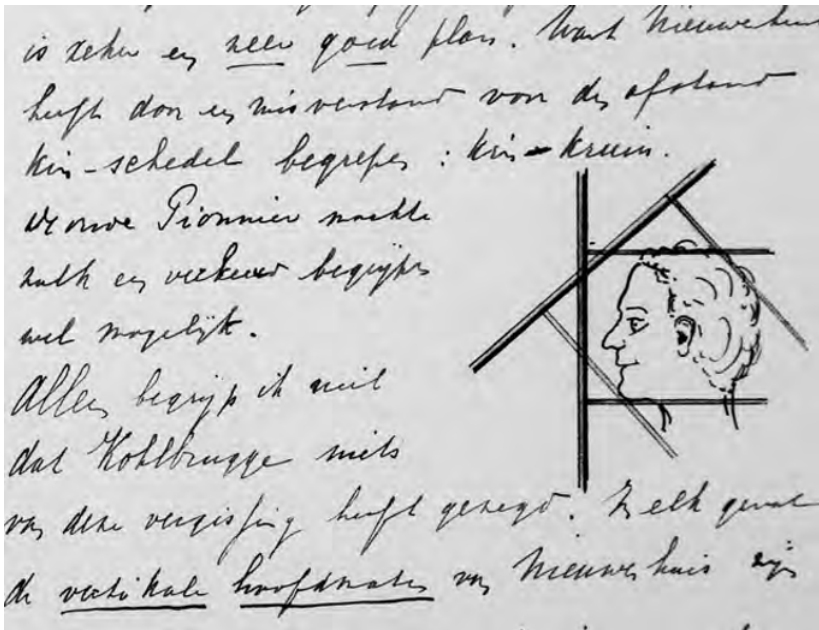 is zeker een zeer goed plan. Want Nieuwenhuis
heeft dan een misverstand van den afstand
kin-schedel begrepen : kin-kruin.
onze Pionnier maakte
zulk een verkeerd begrijpen
wel mogelijk.
Alleen begrijp ik niet
dat Kohlbrugge niets
van deze vergissing heeft gezegd. In elk geval
de vertikale hoofdmaten van Nieuwenhuis zijn